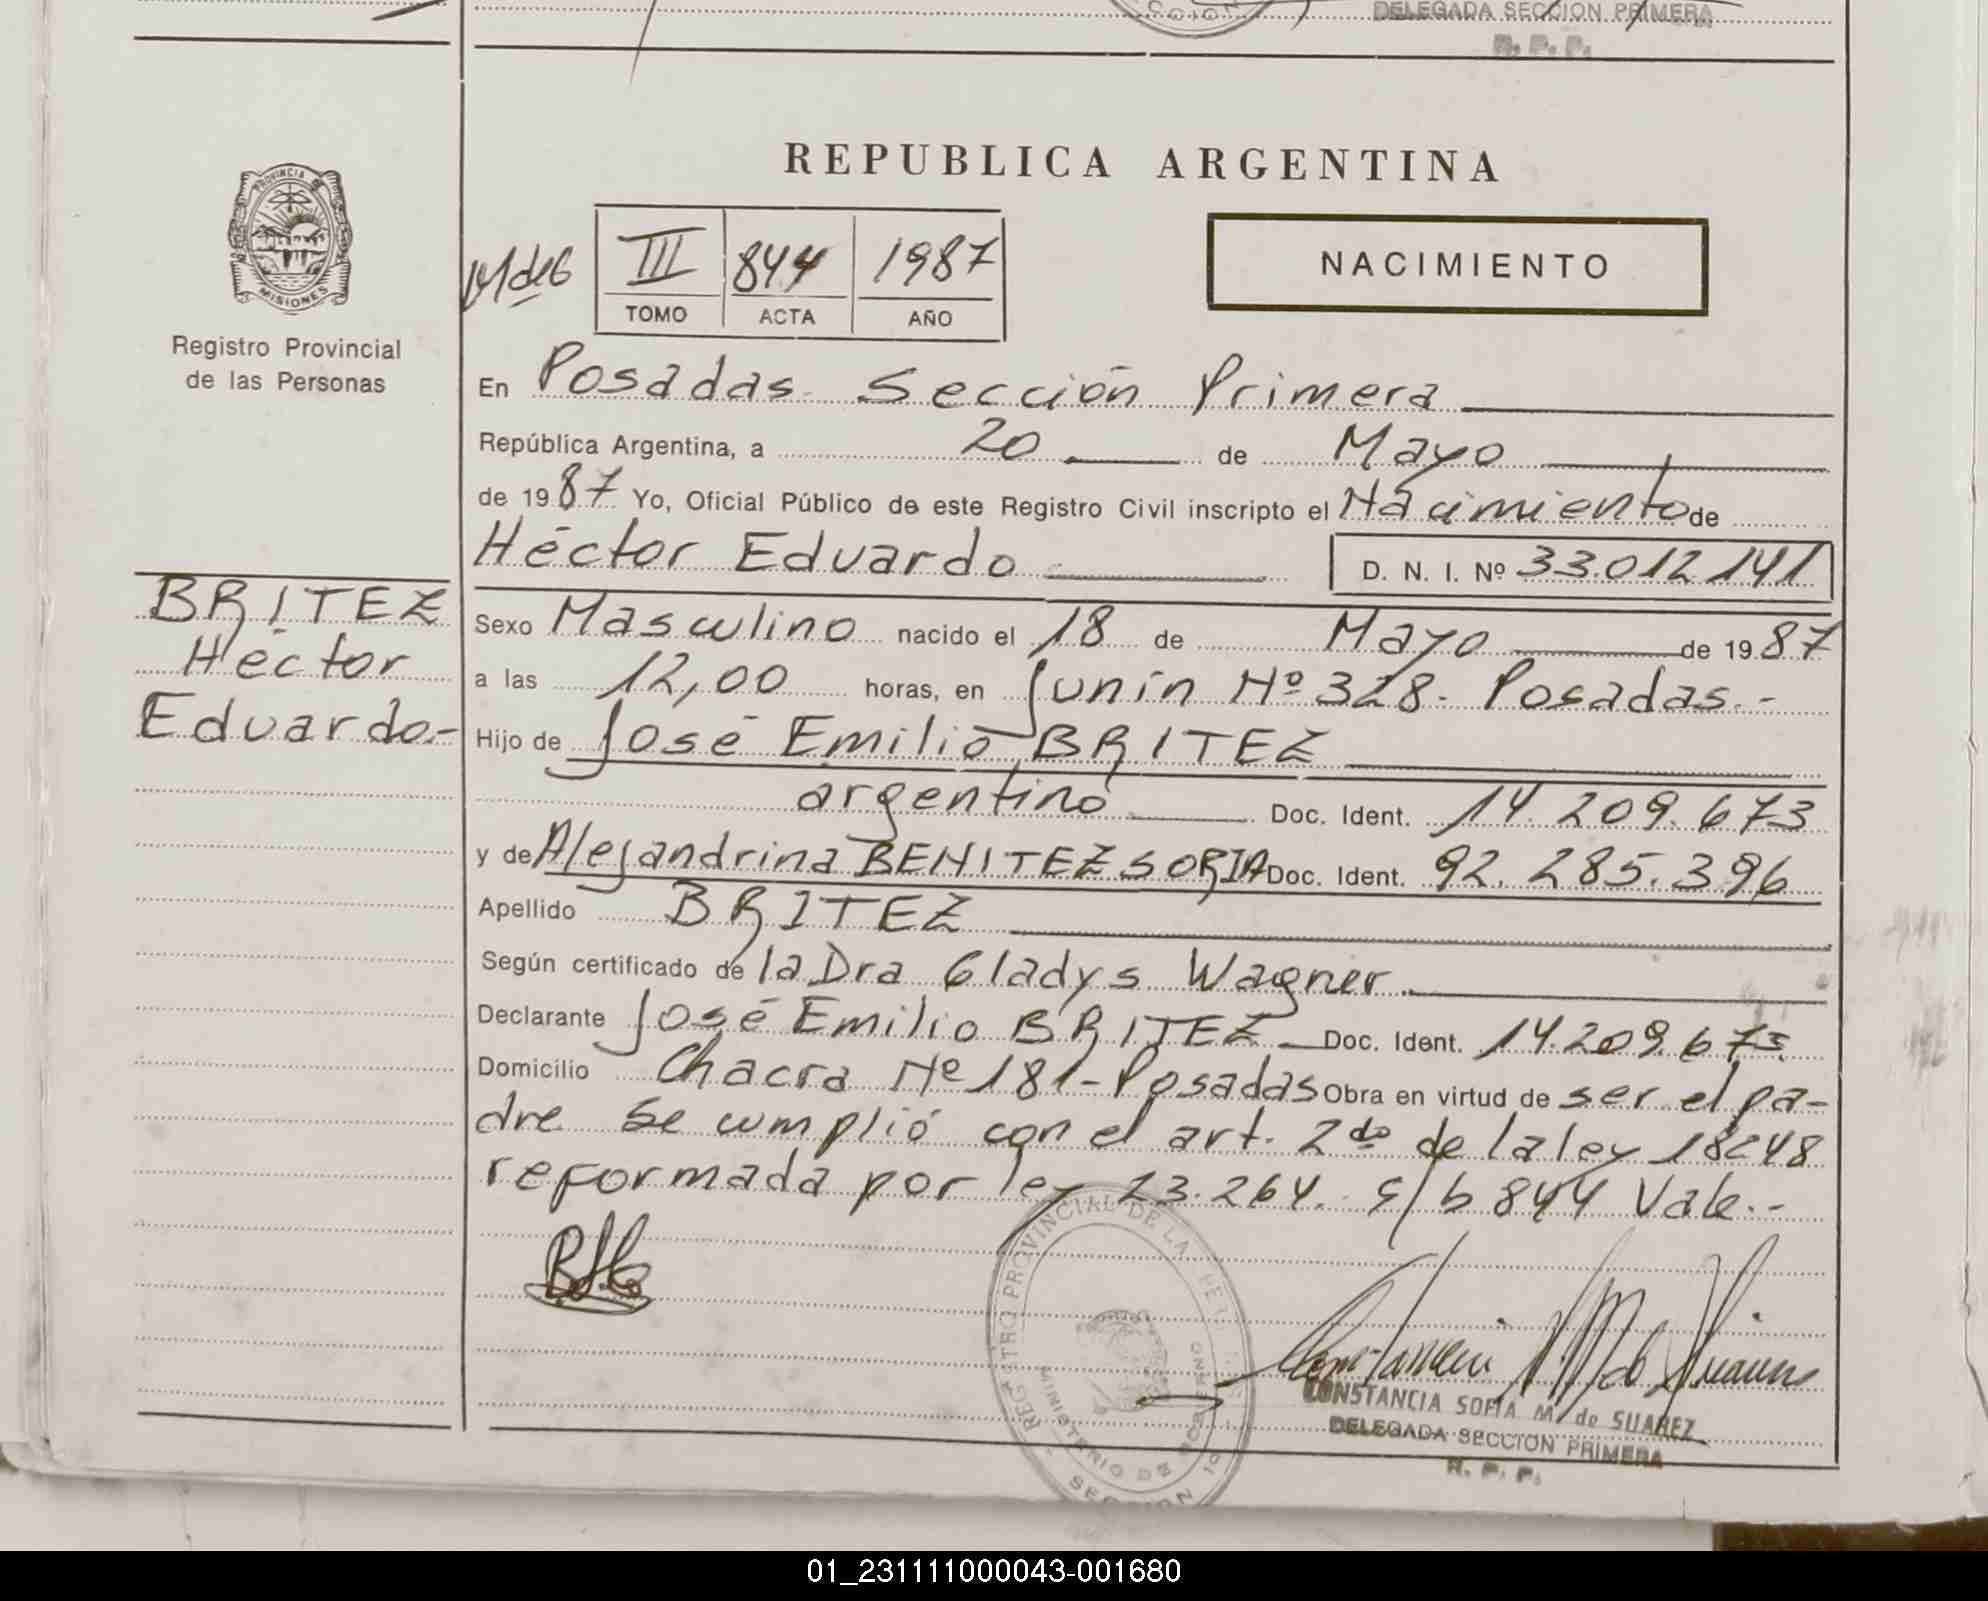 DELEGADA SECCION PRIMERA
R. P. P.
PROVINCIA DE
MISIONES
Registro Provincial
de las Personas
BRITEZ
Héctor
Eduardo.-
REPUBLICA ARGENTINA
III 844 1987
TOMO ACTA AÑO
NACIMIENTO
En Posadas Sección Primera
República Argentina, a 20 de Mayo
de 1987 Yo, Oficial Público de este Registro Civil inscripto el Nacimiento de
Héctor Eduardo D. N. I. Nº 33.012.141
Sexo Masculino nacido el 18 de Mayo de 1987
a las 12,00 horas, en Junín Nº 328- Posadas.-
Hijo de José Emilio BRITEZ
argentino Doc. Ident. 14.209.673
y de Alejandrina BENITEZ SORIA Doc. Ident. 92.285.396
Apellido BRITEZ
Según certificado de la Dra Gladys Wagner
Declarante José Emilio BRITEZ Doc. Ident. 14.209.673
Domicilio Chacra Nº 181-Posadas Obra en virtud de ser el pa-
dre Se cumplió con el art. 2do de la ley 18248
reformada por ley 23.264. s/b 844 Vale.-
REGISTRO PROVINCIAL DE LA
MINISTERIO DE GOBIERNO
SECCION 1º
CONSTANCIA SOFIA M. de SUAREZ
DELEGADA SECCION PRIMERA
R. P. P.
01_231111000043-001680